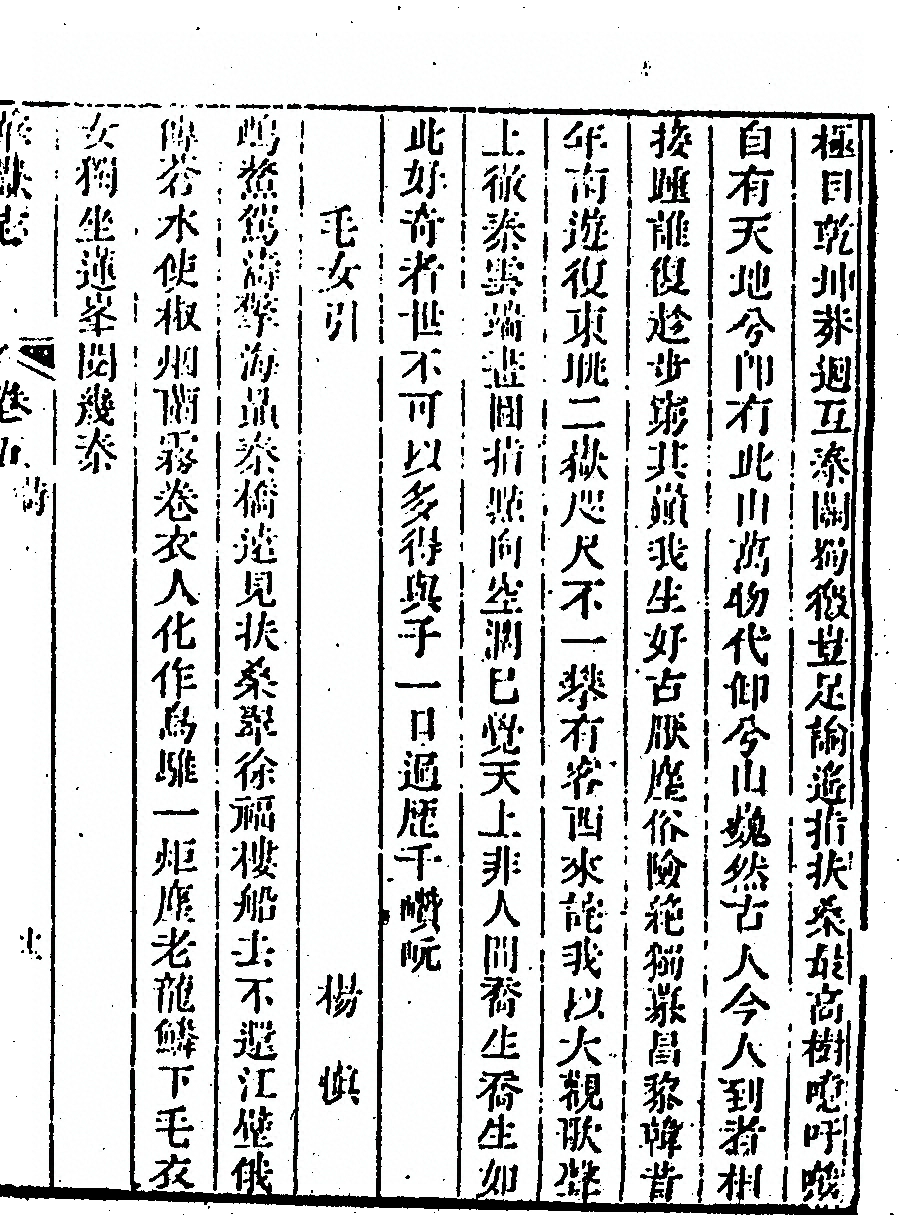 極目乾坤莽迴互秦關獨微豈足論遙指扶桑最高樹噫吁嚱
自有天地兮卽有此山萬物代仰兮山巍然古人今人到者相
接踵誰復趁步窮其巔我生好古厭塵俗險絕獨羨昌黎韓昔
年南遊復東眺二嶽咫尺不一攀有客西來詫我以大觀歌聲
上徹秦雲端畫圖指點向空濶已覺天上非人間喬生喬生如
此好奇者世不可以多得與子一日過歷千巑岏
毛女引
楊慎
鴟鰲駕濤擎海晶秦僑遠見扶桑翠徐福樓船去不還江壁俄
傳若水使椒烟蘭霧卷衣人化作烏騅一炬塵老龍鱗下毛衣
女獨坐蓮峯閱幾秦
華嶽志
卷五 詩